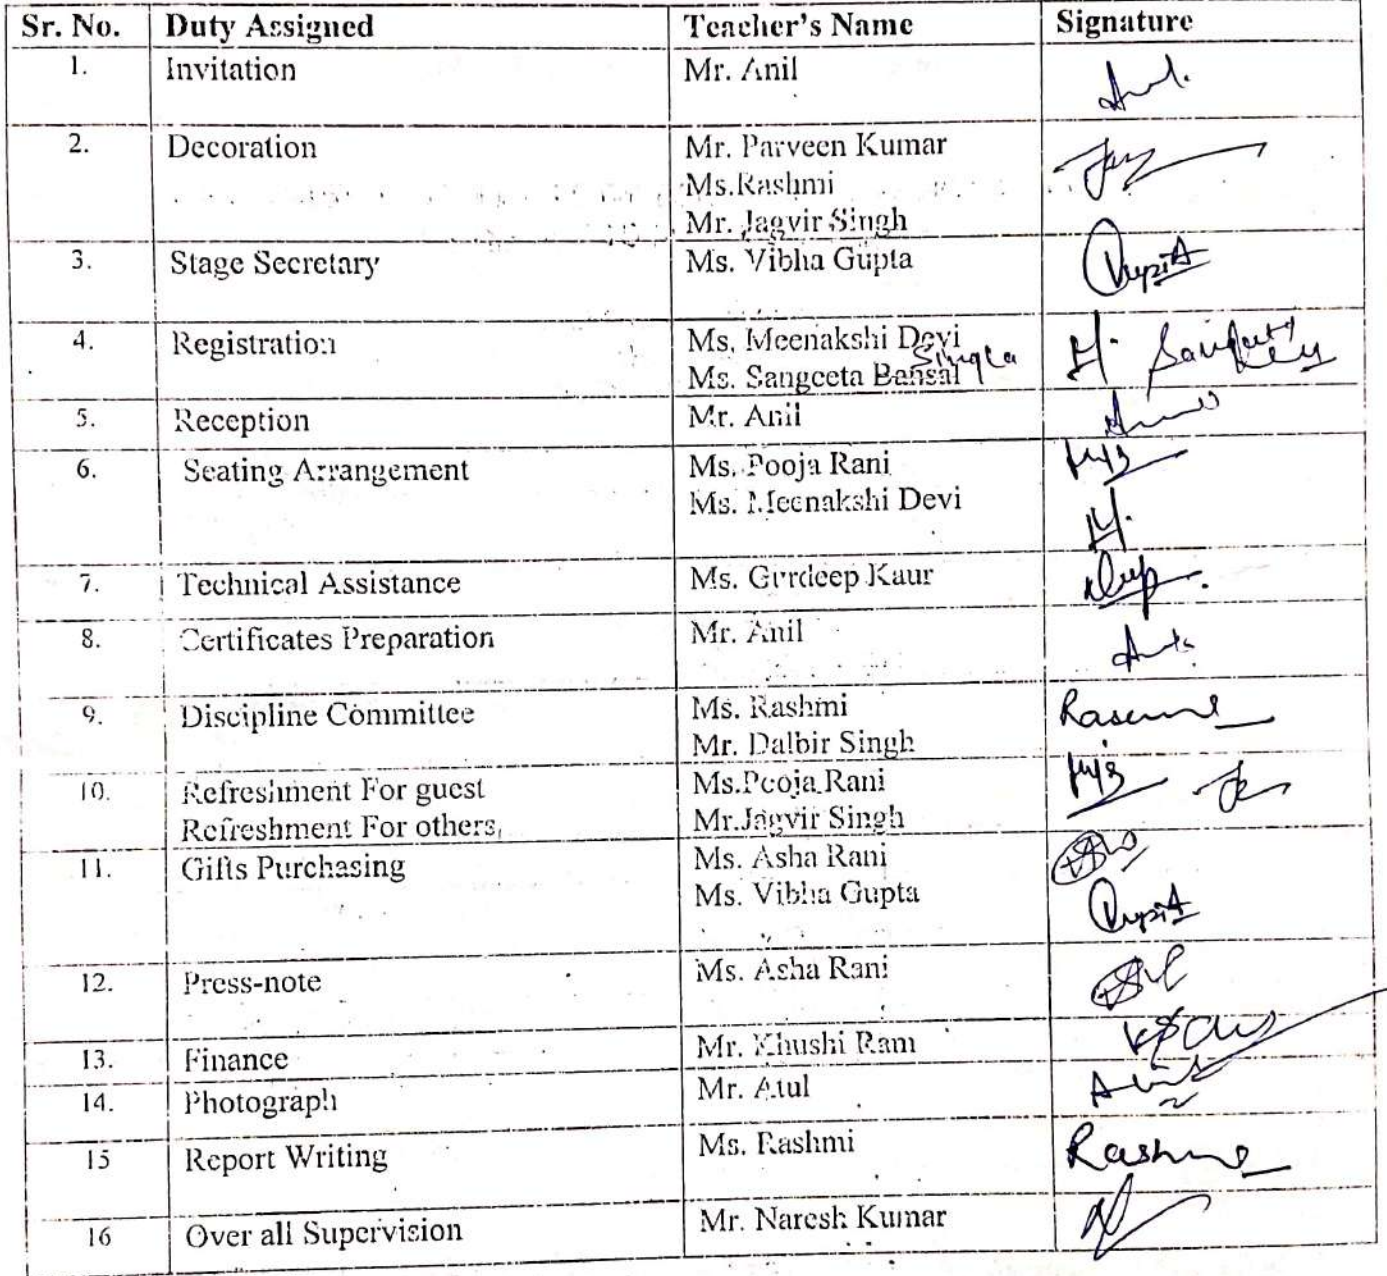 Sr. No. Duty Assigned Teacher's Name Signature
1. Invitation Mr. Anil
2. Decoration Mr. Parveen Kumar
Ms.Rashmi
Mr. Jagvir Singh
3. Stage Secretary Ms. Vibha Gupta
4. Registration Ms. Meenakshi Devi
Ms. Sangeeta Bansal Singla
5. Reception Mr. Anil
6. Seating Arrangement Ms. Pooja Rani
Ms. Meenakshi Devi
7. Technical Assistance Ms. Gurdeep Kaur
8. Certificates Preparation Mr. Anil
9. Discipline Committee Ms. Rashmi
Mr. Dalbir Singh
10. Refreshment For guest Ms.Pooja Rani
Refreshment For others, Mr.Jagvir Singh
11. Gifts Purchasing Ms. Asha Rani
Ms. Vibha Gupta
12. Press-note Ms. Asha Rani
13. Finance Mr. Khushi Ram
14. Photograph Mr. Atul
15 Report Writing Ms. Rashmi
16 Over all Supervision Mr. Naresh Kumar